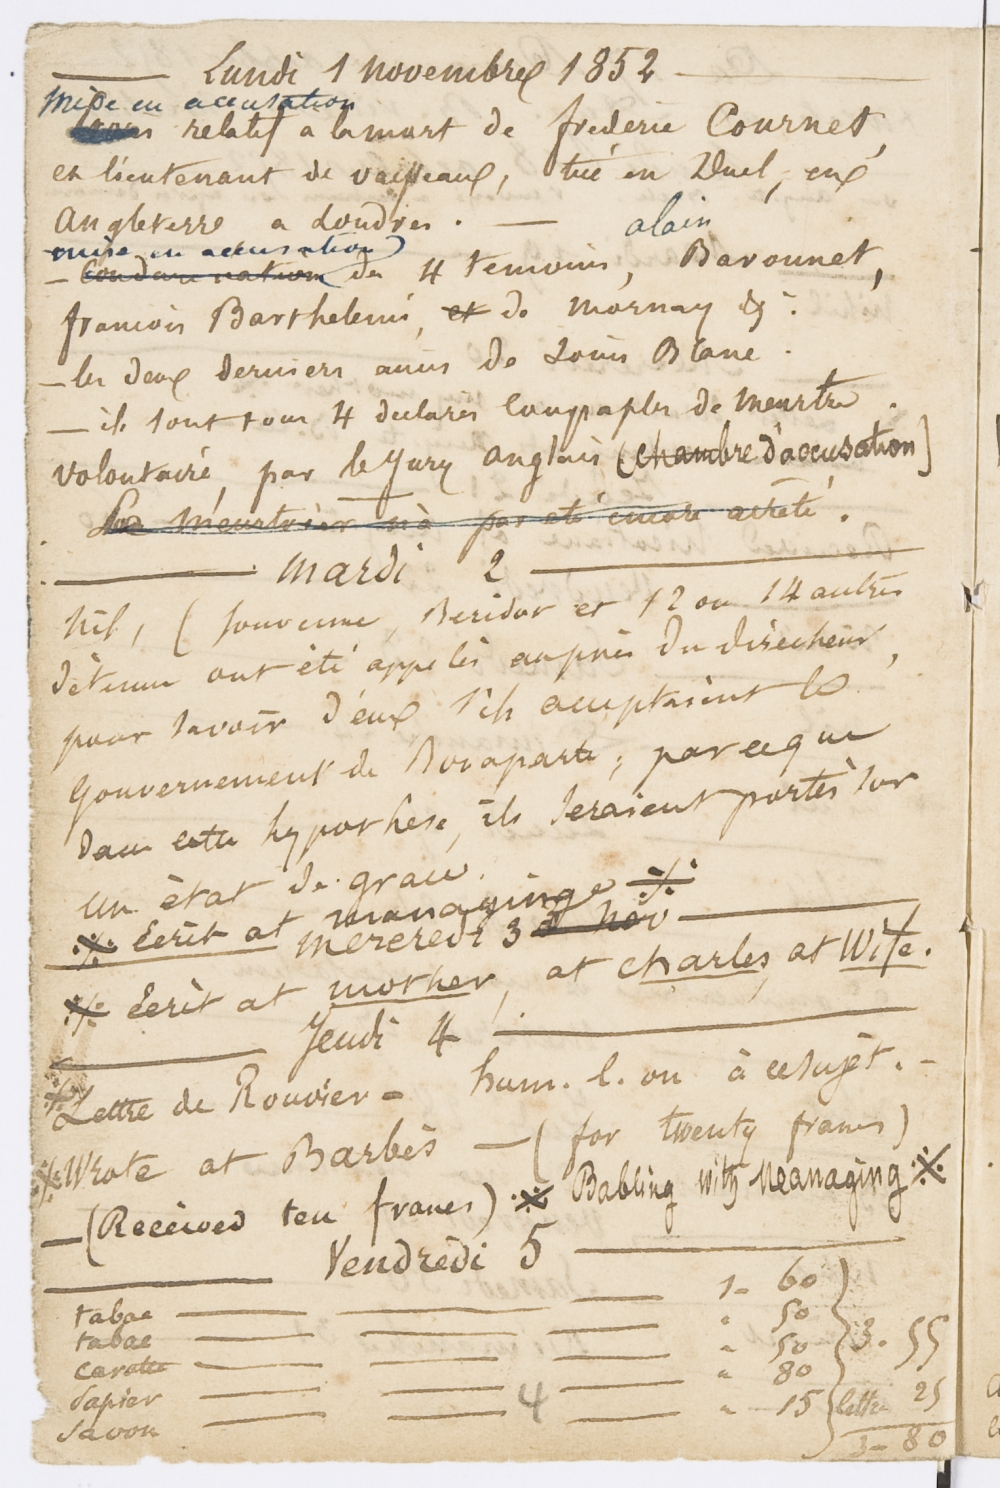 Lundi 1 novembre 1852
mise en accusation
relatif a la mort de frederic Cournet,
ex lieutenant de vaisseaux, tué en Duel, en
Angleterre a Londres. — alain
mise en accusation
— Condamnation des 4 temoins, Baronnet,
francois Barthelemi, et de Mornay &:
— les deux derniers amis de Louis Blanc.
— ils sont tous 4 declarés Coupables de meurtre
volontaire, par le Jury anglais (chambre d'accusation)
Le meurtrier n'a pas eté encore arrété.
Mardi 2
hil, ( Jouvenne, Beridor et 12 ou 14 autres
détenus ont été appelés auprès du directeur,
pour savoir d'eux s'ils acceptaient le
Gouvernement de Bonaparte; parceque
dans cette hypothèse, ils seraient portés sur
un état de grace.
※ Ecrit at managinge ※
Mercredi 3 nov
※ Ecrit at mother, at charles, at Wife.
Jeudi 4
※ Lettre de Rouvier = hum. l. on à ce sujèt. —
※ Wrote at Barbès — ( for twenty francs )
— (Recèived ten francs) ※ Babling with Meanaging ※
Vendrèdi 5
tabac 1 - 60
tabac " 50
carotte " 50
papier " 80
Savon " 15
3. 55
lettre 25
3 - 80
4